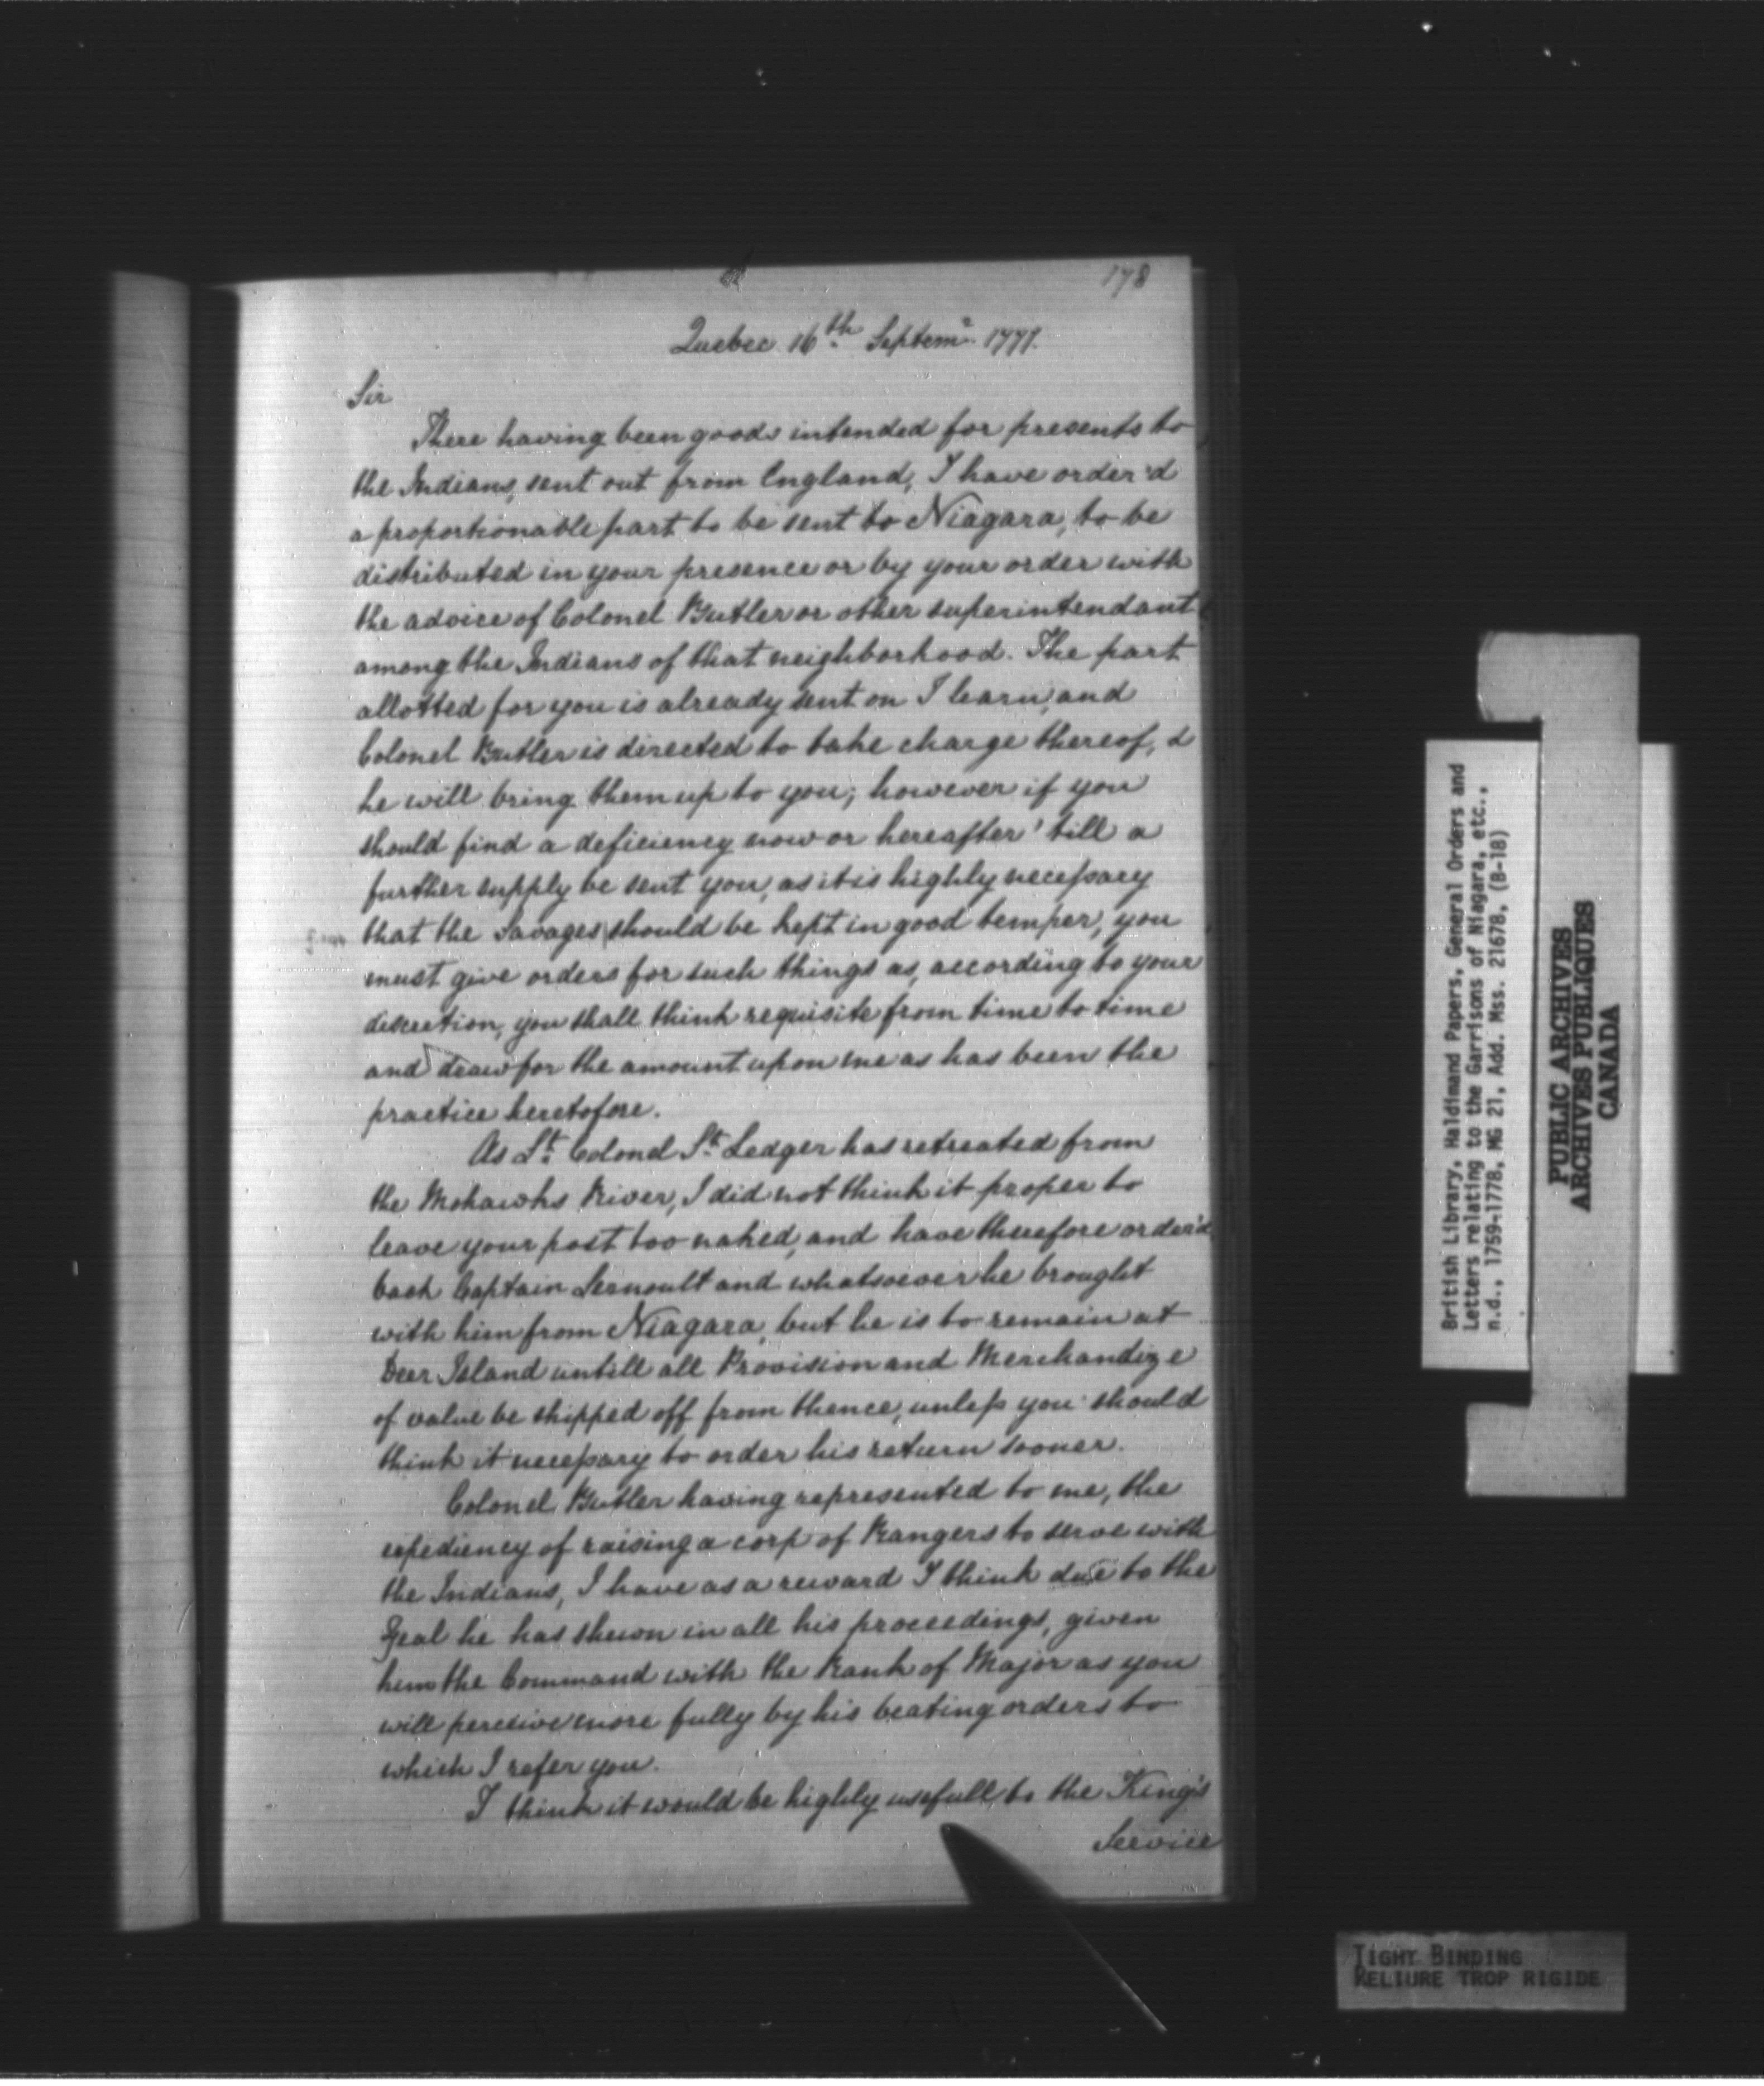 178
Quebec 16th Septemr. 1777.
Sir
There having been goods intended for presents to
the Indians, sent out from England, I have order'd
a proportionable part to be sent to Niagara, to be
distributed in your presence or by your order with
the advice of Colonel Butler or other superintendant
among the Indians of that neighborhood. The part
allotted for you is already sent on I learn, and
Colonel Butler is directed to take charge thereof, &
he will bring them up to you; however if you
should find a deficiency now or hereafter' till a
further supply be sent you, as it is highly necessary
that the Savages should be kept in good temper, you
must give orders for such things as, according to your
discretion, you shall think requisite from time to time
and draw for the amount upon me as has been the
practice heretofore.
As Lt. Colonel St. Ledger has retreated from
the Mohawks River, I did not think it proper to
leave your post too naked, and have therefore order'd
back Captain Lernoult and whatsoever he brought
with him from Niagara, but he is to remain at
Deer Island untill all Provision and Merchandize
of value be shipped off from thence, unless you should
think it necessary to order his return sooner.
Colonel Butler having represented to me, the
expediency of raising a corp of Rangers to serve with
the Indians, I have as a reward I think due to the
Zeal he has shewn in all his proceedings, given
him the Command with the Rank of Major as you
will perceive more fully by his beating orders to
which I refer you.
I think it would be highly usefull to the King's
Service
British Library, Haldimand Papers, General Orders and
Letters relating to the Garrisons of Niagara, etc.,
n.d., 1759-1778, MG 21, Add. Mss. 21678, (B-18)
PUBLIC ARCHIVES
ARCHIVES PUBLIQUES
CANADA
TIGHT BINDING
RELIURE TROP RIGIDE